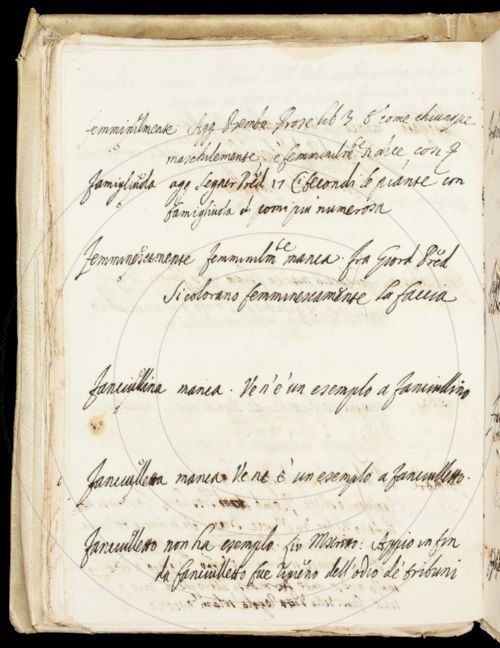 femminilmente Agg Bembo Prose lib 3 e come che
maschilemente, e femminilmte si dice, così
famigliuola agg Segner Pred 17 Cifecondi le piante con
famigliuola di pomi più numerosa
femminescamente femminilmte manca. fra Giord Pred
Si colorano femminescamente la faccia
fanciullina manca. Ve n'è un esempio a fanciullino
fanciulletta manca Ve ne è un esempio a fanciulletto.
fanciulletto non ha esempio. Appio in fin
da fanciulletto fue ripieno dell'odio de tribuni